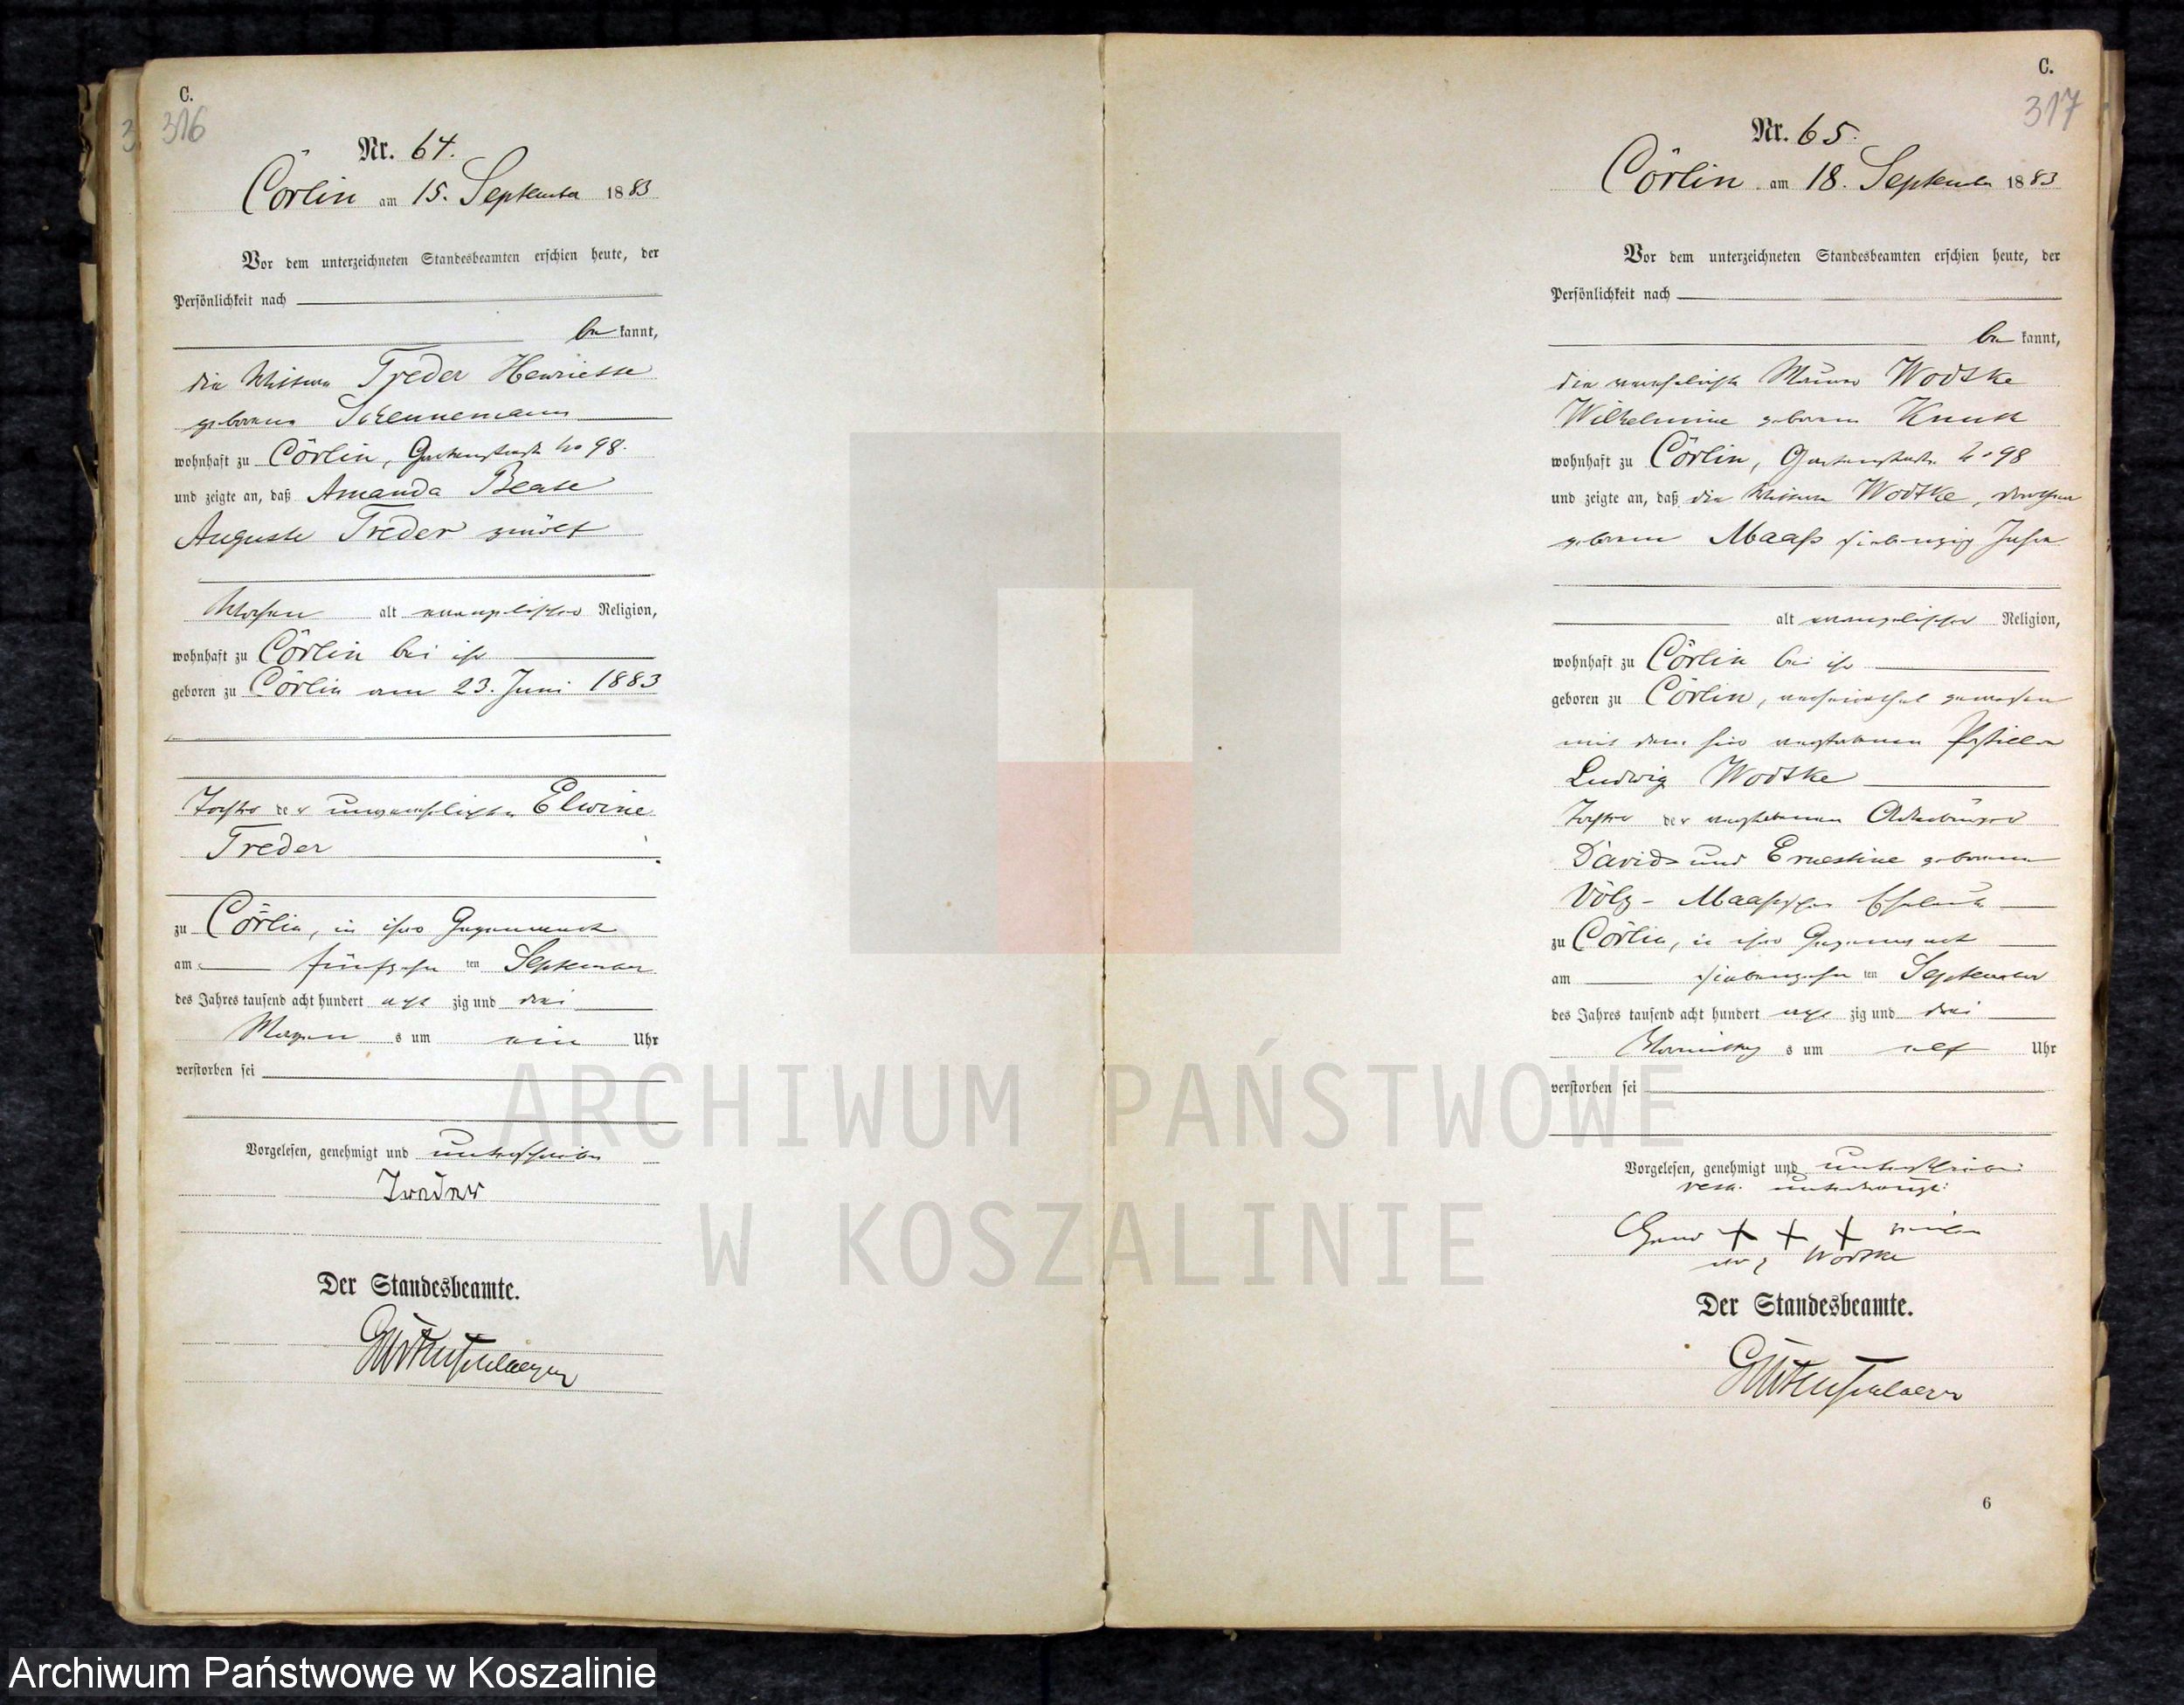 C.
316
Nr. 64.
Cörlin am 15. September 1883
Vor dem unterzeichneten Standesbeamten erschien heute, der
Persönlichkeit nach
be kannt,
die Wittwe Treder Henriette
geborene
wohnhaft zu Cörlin, Gartenstraße No 98.
und zeigte an, daß Amanda Beate
Auguste Treder zwölf
Wochen alt evangelischer Religion,
wohnhaft zu Cörlin bei ihr
geboren zu Cörlin am 23. Juni 1883
Tochter der unverehelichten Elwine
Treder
zu Cörlin, in ihrer Gegenwart
am fünfzehn ten September
des Jahres tausend acht hundert acht zig und drei
Morgen s um ein Uhr
verstorben sei
Vorgelesen, genehmigt und unterschrieben
Treder
Der Standesbeamte.
C.
317
Nr. 65.
Cörlin am 18. September 1883
Vor dem unterzeichneten Standesbeamten erschien heute, der
Persönlichkeit nach
be kannt,
die verehelichte Maurer Wodtke
Wilhelmine geborene Knuth
wohnhaft zu Cörlin, Gartenstraße No 98
und zeigte an, daß die Wittwe Wodtke, Dorothea
geborene Maaß siebenzig Jahre
alt evangelischer Religion,
wohnhaft zu Cörlin bei ihr
geboren zu Cörlin, verheirathet gewesen
mit dem hier verstorbenen Postillon
Ludwig Wodtke
Tochter der verstorbenen Ackerbürger
David und Ernestine geborene
Völz - Maaß'schen Eheleute
zu Cörlin, in ihrer Gegenwart
am siebenzehn ten September
des Jahres tausend acht hundert acht zig und drei
Vormittag s um elf Uhr
verstorben sei
Vorgelesen, genehmigt und unterschrieben
resp. unterkreuzt:
+ + +
Wodtke
Der Standesbeamte.
6
ARCHIWUM PAŃSTWOWE
W KOSZALINIE
Archiwum Państwowe w Koszalinie